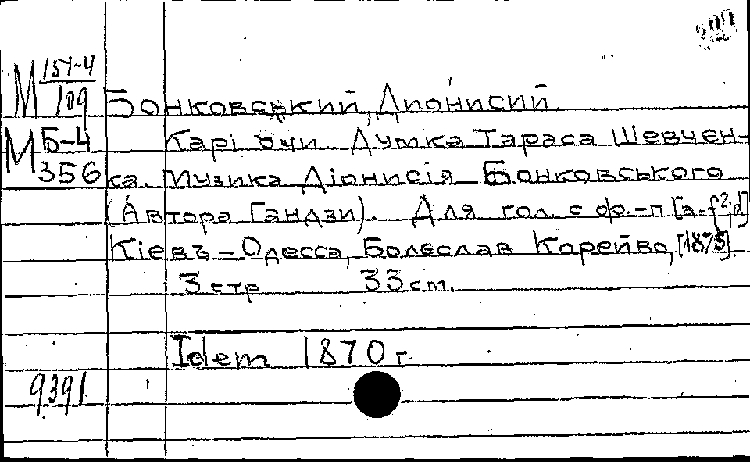 М 151-4
109
Бонковський, Дионисий
М Б-4
356
Карі очи Думка Тараса Шевчен-
ка. Музика Діонисія Бонковського
(Автора Гандзи). Для гол. с ф.-п [a-f²;d]
Кіевъ-Одесса, Болеслав Корейво, [1875].
3 стр 33 cm.
Idem 1870 г.
9391